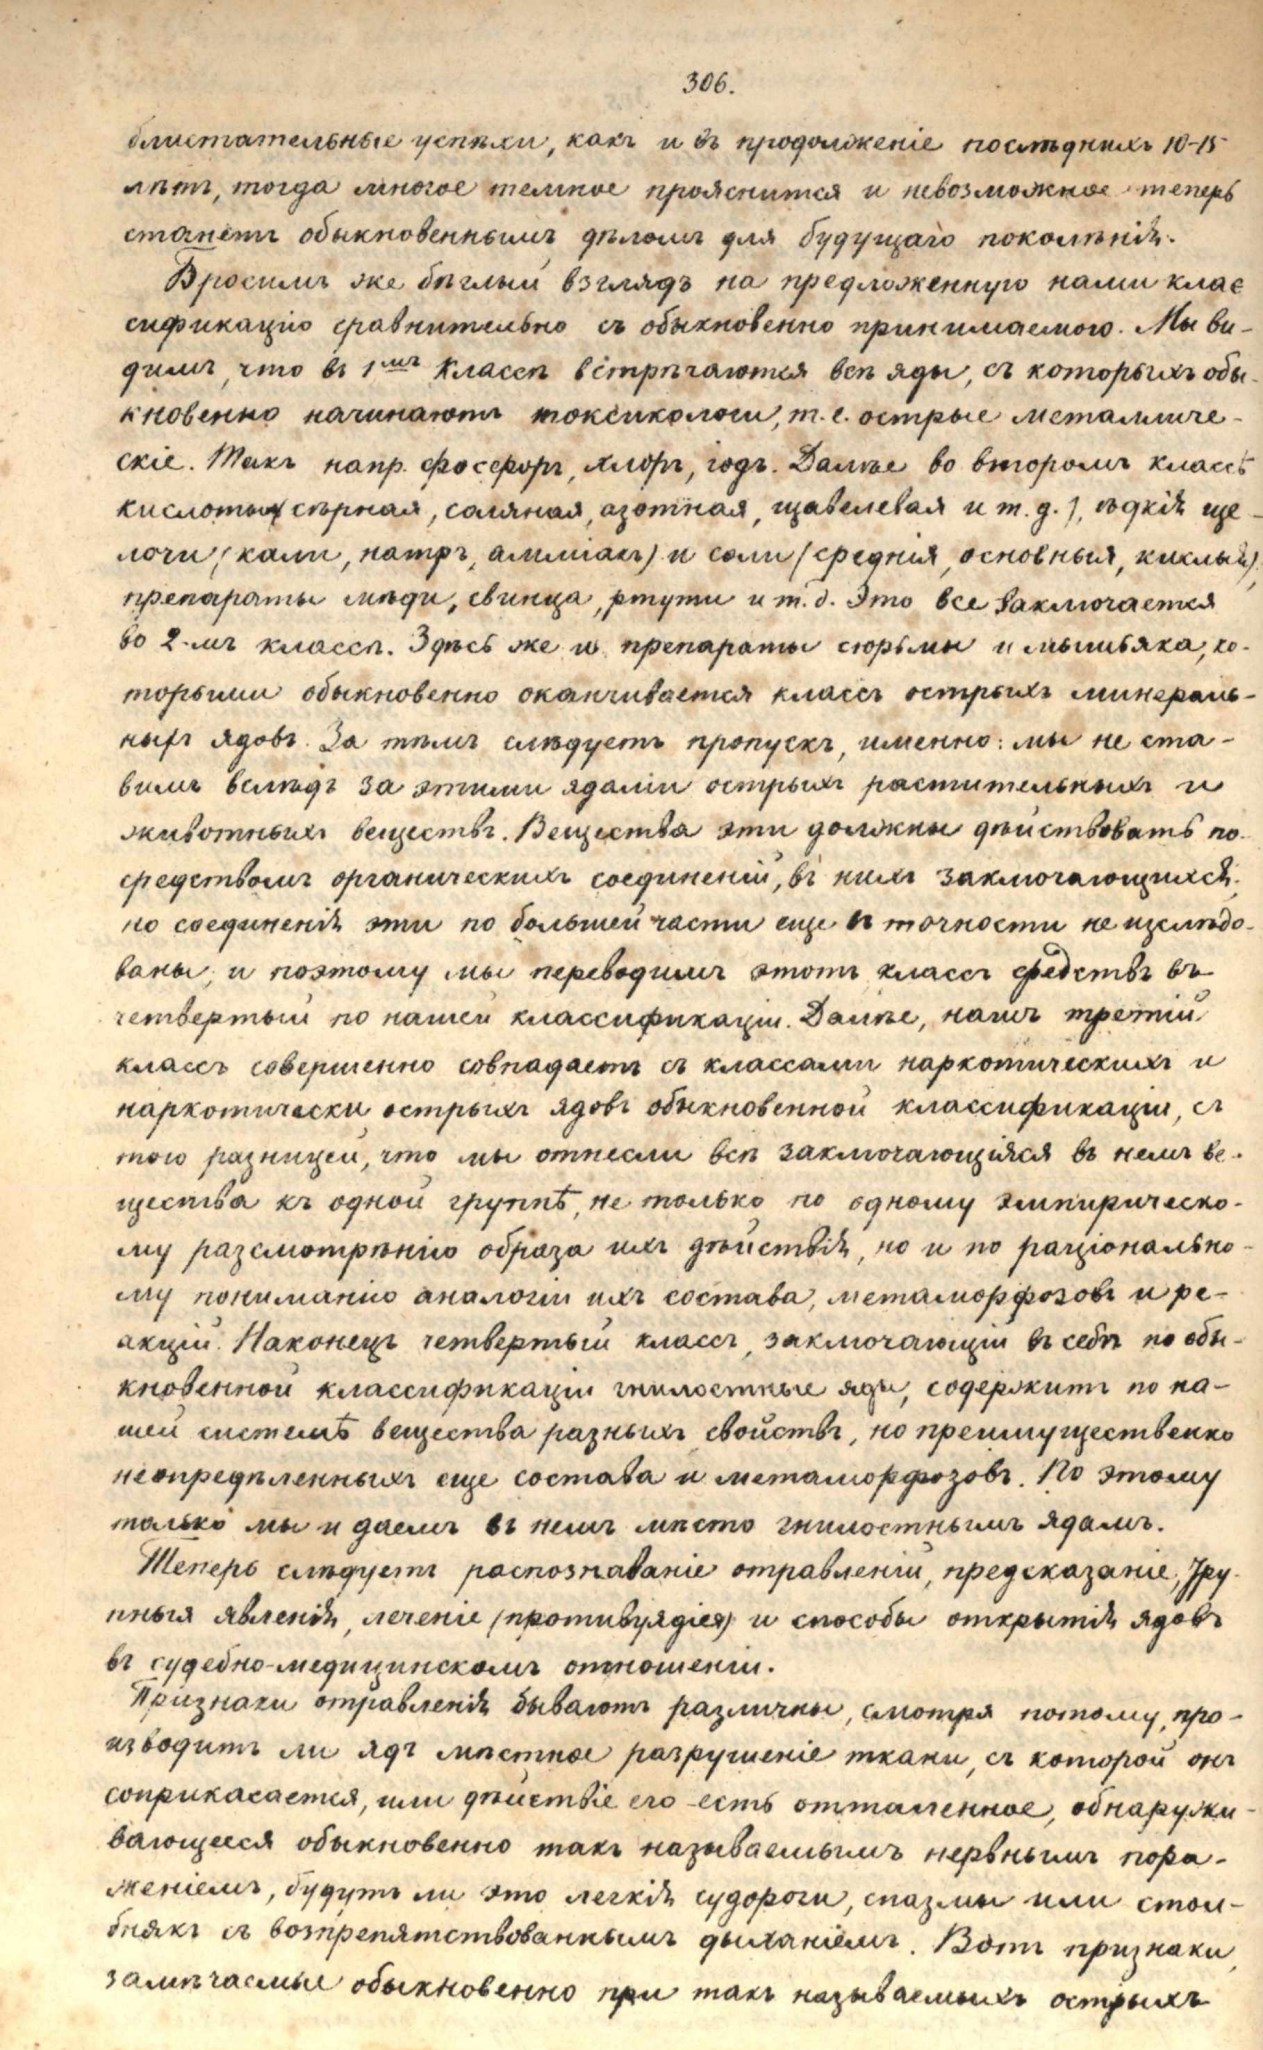 306.
блистательные успѣхи, какъ и въ продолженіе послѣднихъ 10-15
лѣтъ, тогда многое темное прояснится и невозможное теперь
станетъ обыкновеннымъ дѣломъ для будущаго поколѣнія.
Бросимъ же бѣглый взглядъ на предложенную нами клас
сификацію сравнительно съ обыкновенно принимаемою. Мы ви-
димъ, что въ 1мъ классѣ встрѣчаются всѣ яды, съ которыхъ обы-
кновенно начинаютъ токсикологи, т.е. острые металличе-
скіе. Такъ напр. фосфоръ, хлоръ, іодъ. Далѣе во второмъ классѣ
кислоты (сѣрная, соляная, азотная, щавелевая и т.д.), ѣдкія ще-
лочи (кали, натръ, амміакъ) и соли (среднія, основныя, кислыя),
препараты мѣди, свинца, ртути и т.д. Это все заключается
во 2-мъ классѣ. Здѣсь же и препараты сюрьмы и мышьяка, ко-
торыми обыкновенно оканчивается классъ острыхъ минераль-
ныхъ ядовъ. За тѣмъ слѣдуетъ пропускъ, именно: мы не ста-
вимъ вслѣдъ за этими ядами острыхъ растительныхъ и
животныхъ веществъ. Вещества эти должны дѣйствовать по-
средствомъ органическихъ соединеній, въ нихъ заключающихся,
но соединенія эти по большей части еще въ точности не изслѣдо-
ваны, и поэтому мы переводимъ этотъ классъ средствъ въ
четвертый по нашей классификаціи. Далѣе, нашъ третій
классъ совершенно совпадаетъ съ классами наркотическихъ и
наркотически острыхъ ядовъ обыкновенной классификаціи, съ
тою разницей, что мы отнесли всѣ заключающіяся въ немъ ве-
щества къ одной группѣ, не только по одному эмпирическо-
му разсмотрѣнію образа ихъ дѣйствія, но и по раціонально-
му пониманію аналогіи ихъ состава, метаморфозовъ и ре-
акцій. Наконецъ четвертый классъ, заключающій въ себѣ по обы-
кновенной классификаціи гнилостные яды, содержитъ по на-
шей системѣ вещества разныхъ свойствъ, но преимущественно
неопредѣленныхъ еще состава и метаморфозовъ. По этому
только мы и даемъ въ немъ мѣсто гнилостнымъ ядамъ.
Теперь слѣдуетъ распознаваніе отравленій, предсказаніе, тру-
пныя явленія, леченіе (противуядіея) и способы открытія ядовъ
въ судебно-медицинскомъ отношеніи.
Признаки отравленія бываютъ различны, смотря потому, про-
изводитъ ли ядъ мѣстное разрушеніе ткани, съ которой онъ
соприкасается, или дѣйствіе его есть отталенное, обнаружи-
вающееся обыкновенно такъ называемымъ нервнымъ пора-
женіемъ, будутъ ли это легкія судороги, спазмы или стол-
бнякъ съ возпрепятствованнымъ дыханіемъ. Вотъ признаки,
замѣчаемые обыкновенно при такъ называемыхъ острыхъ